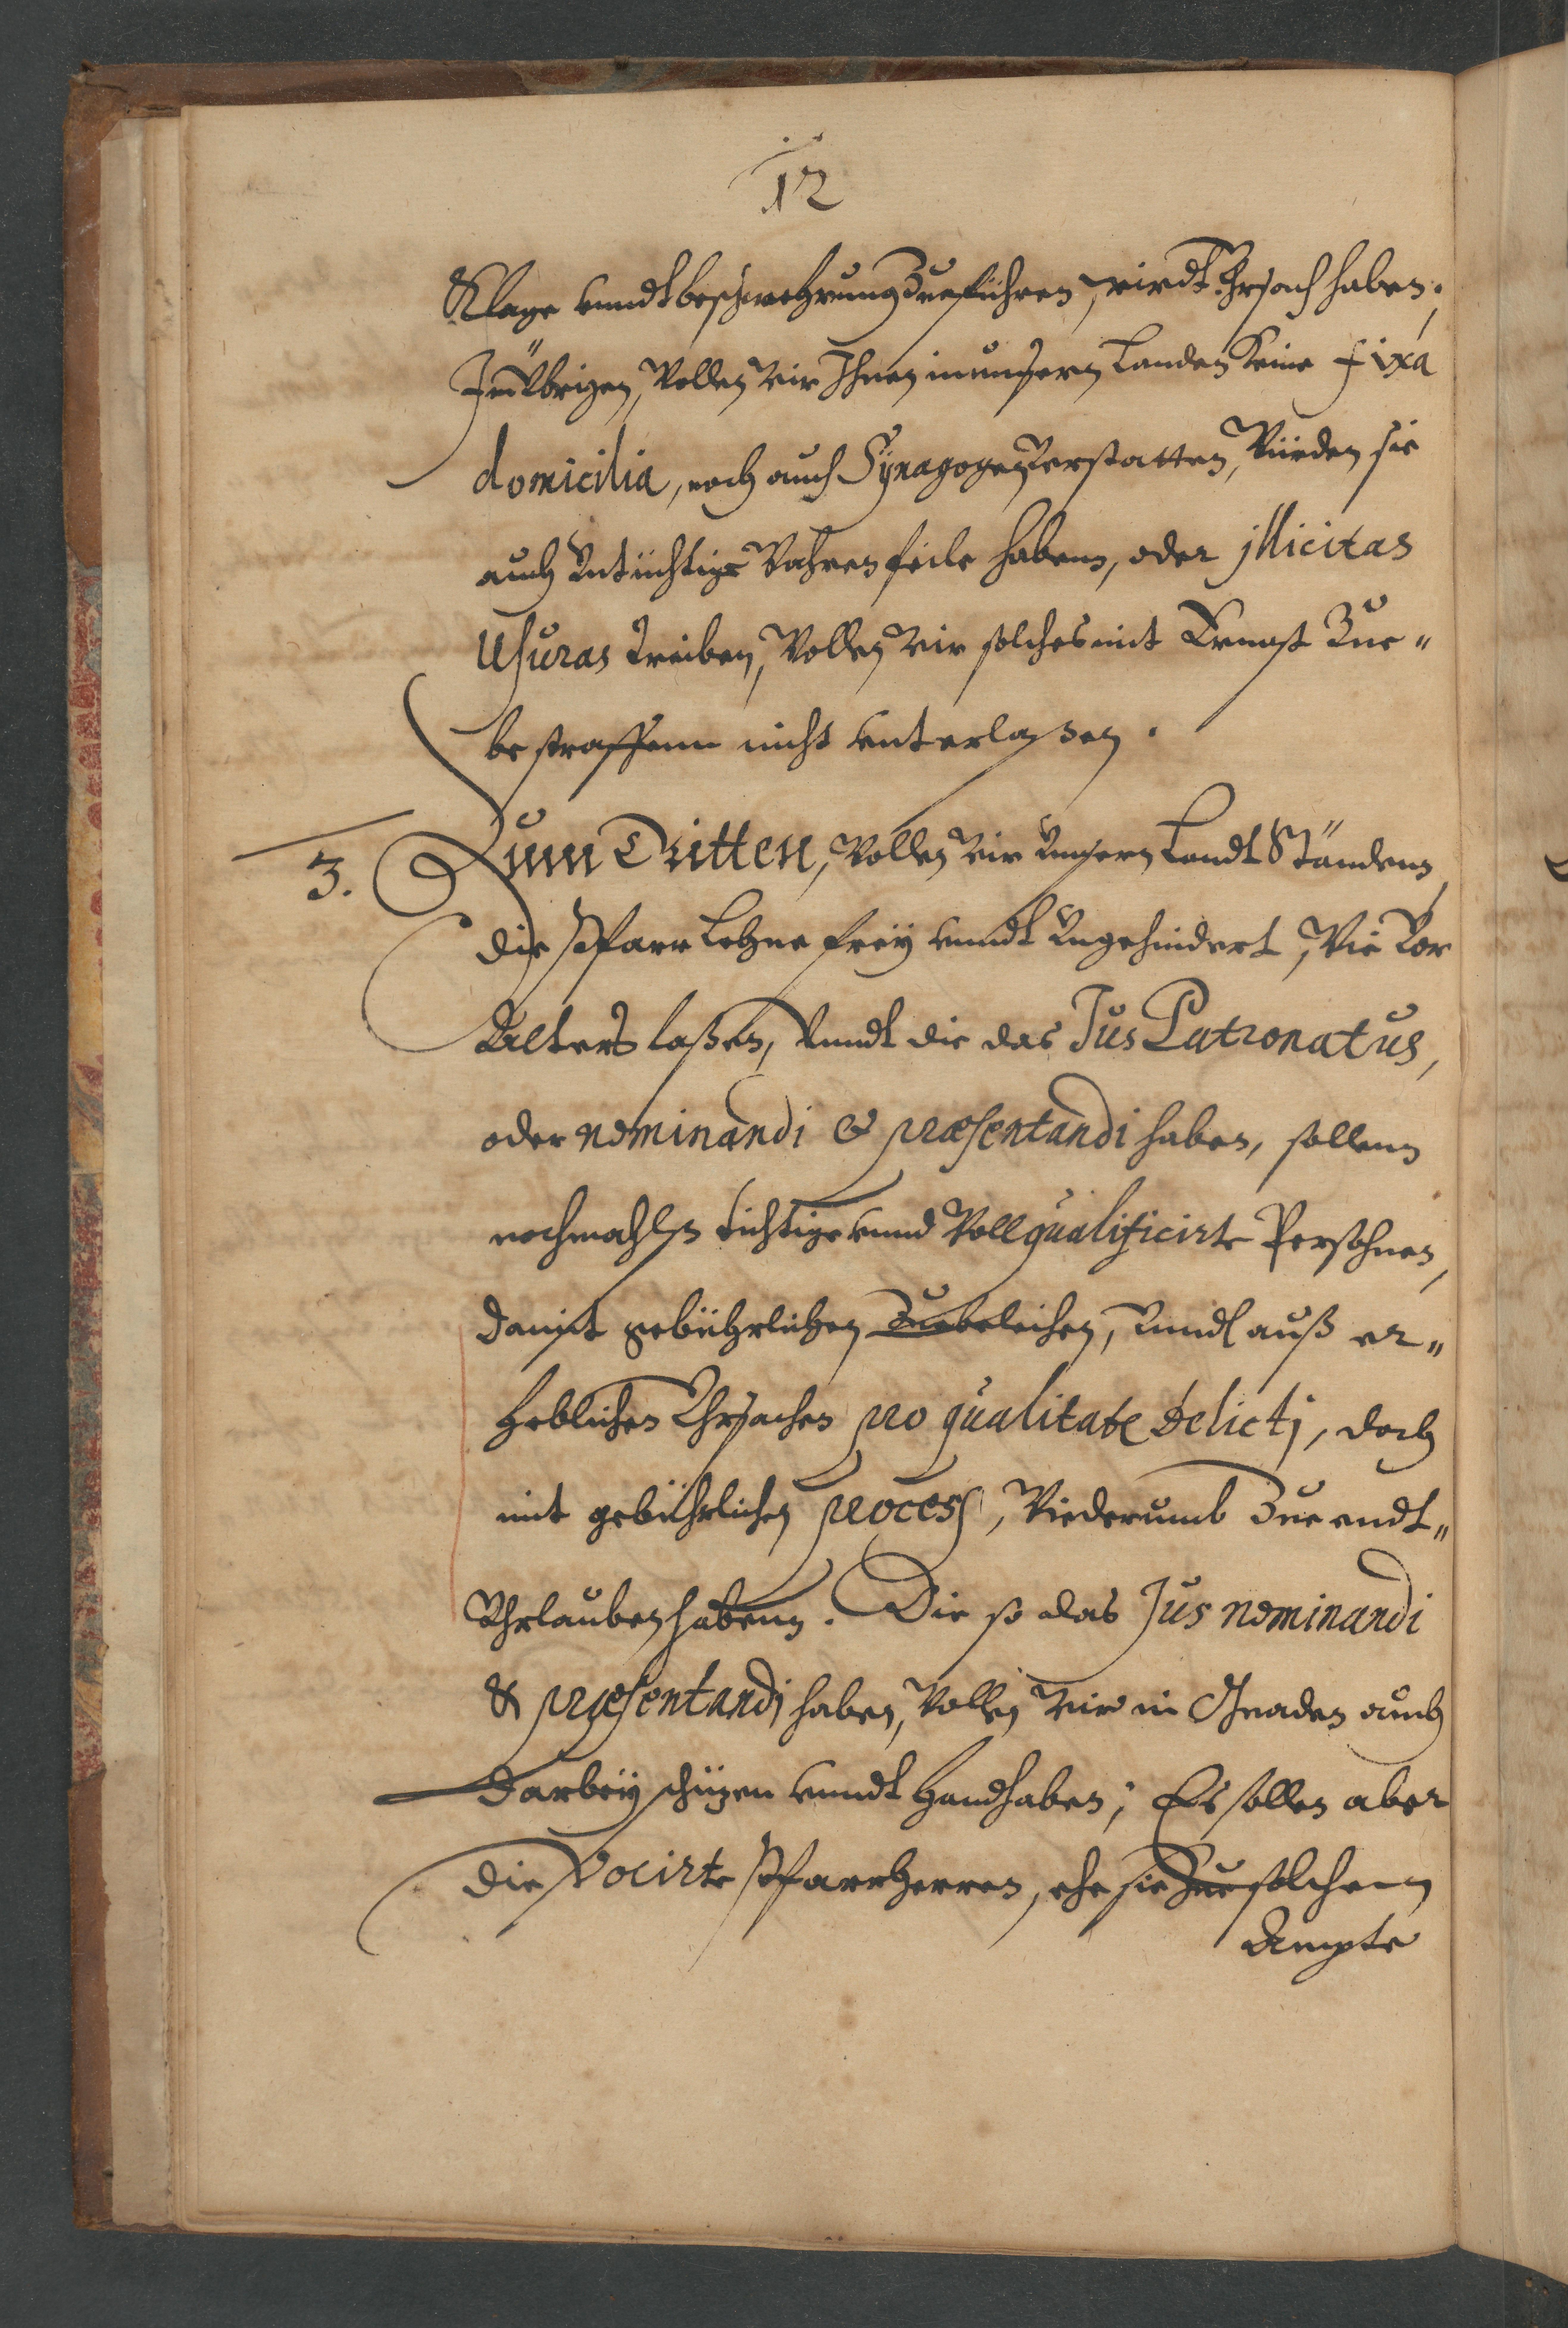 12
Klage vnndt beschwehrung Zueführen, wirdt Vhrsach haben;
Im Übrigen, Wollen Wir Ihnen in unsern Landen Keine fixa
domicilia, noch auch Synagogen Verstatten, Würden sie
auch Vntüchtige Wahren feile habenn, oder jllicitas
Usuras treiben, Wollen Wir solches mit Ernst Zue„
bestraffenn nicht vnterlaßen.
3. Zum Dritten, Wollen Wir Vnsern Landt Ständenn,
die Pfarr Lehne frey vnndt Vngehindert, Wie Vor
Alters laßen, Vnndt die das Jus Patronatus,
oder nominandi & præsentandi haben, sollenn
nochmahlß tüchtige vnnd Woll qualificirte Persohnen,
damit gebührlichen Zuebeleihen, Vnndt auß er„
heblichen Vhrsachen pro qualitate delictj, doch
mit gebührlichen process, Wiederumb Zue endt„
Vhrlauben habenn. Die so das Jus nominandi
& præsentandj haben, Wollen Wir in Gnaden auch
darbey schüzen vnndt Handhaben; Es sollen aber
die Vocirte Pfarrherren, ehe sie Zue solchem
Ampte